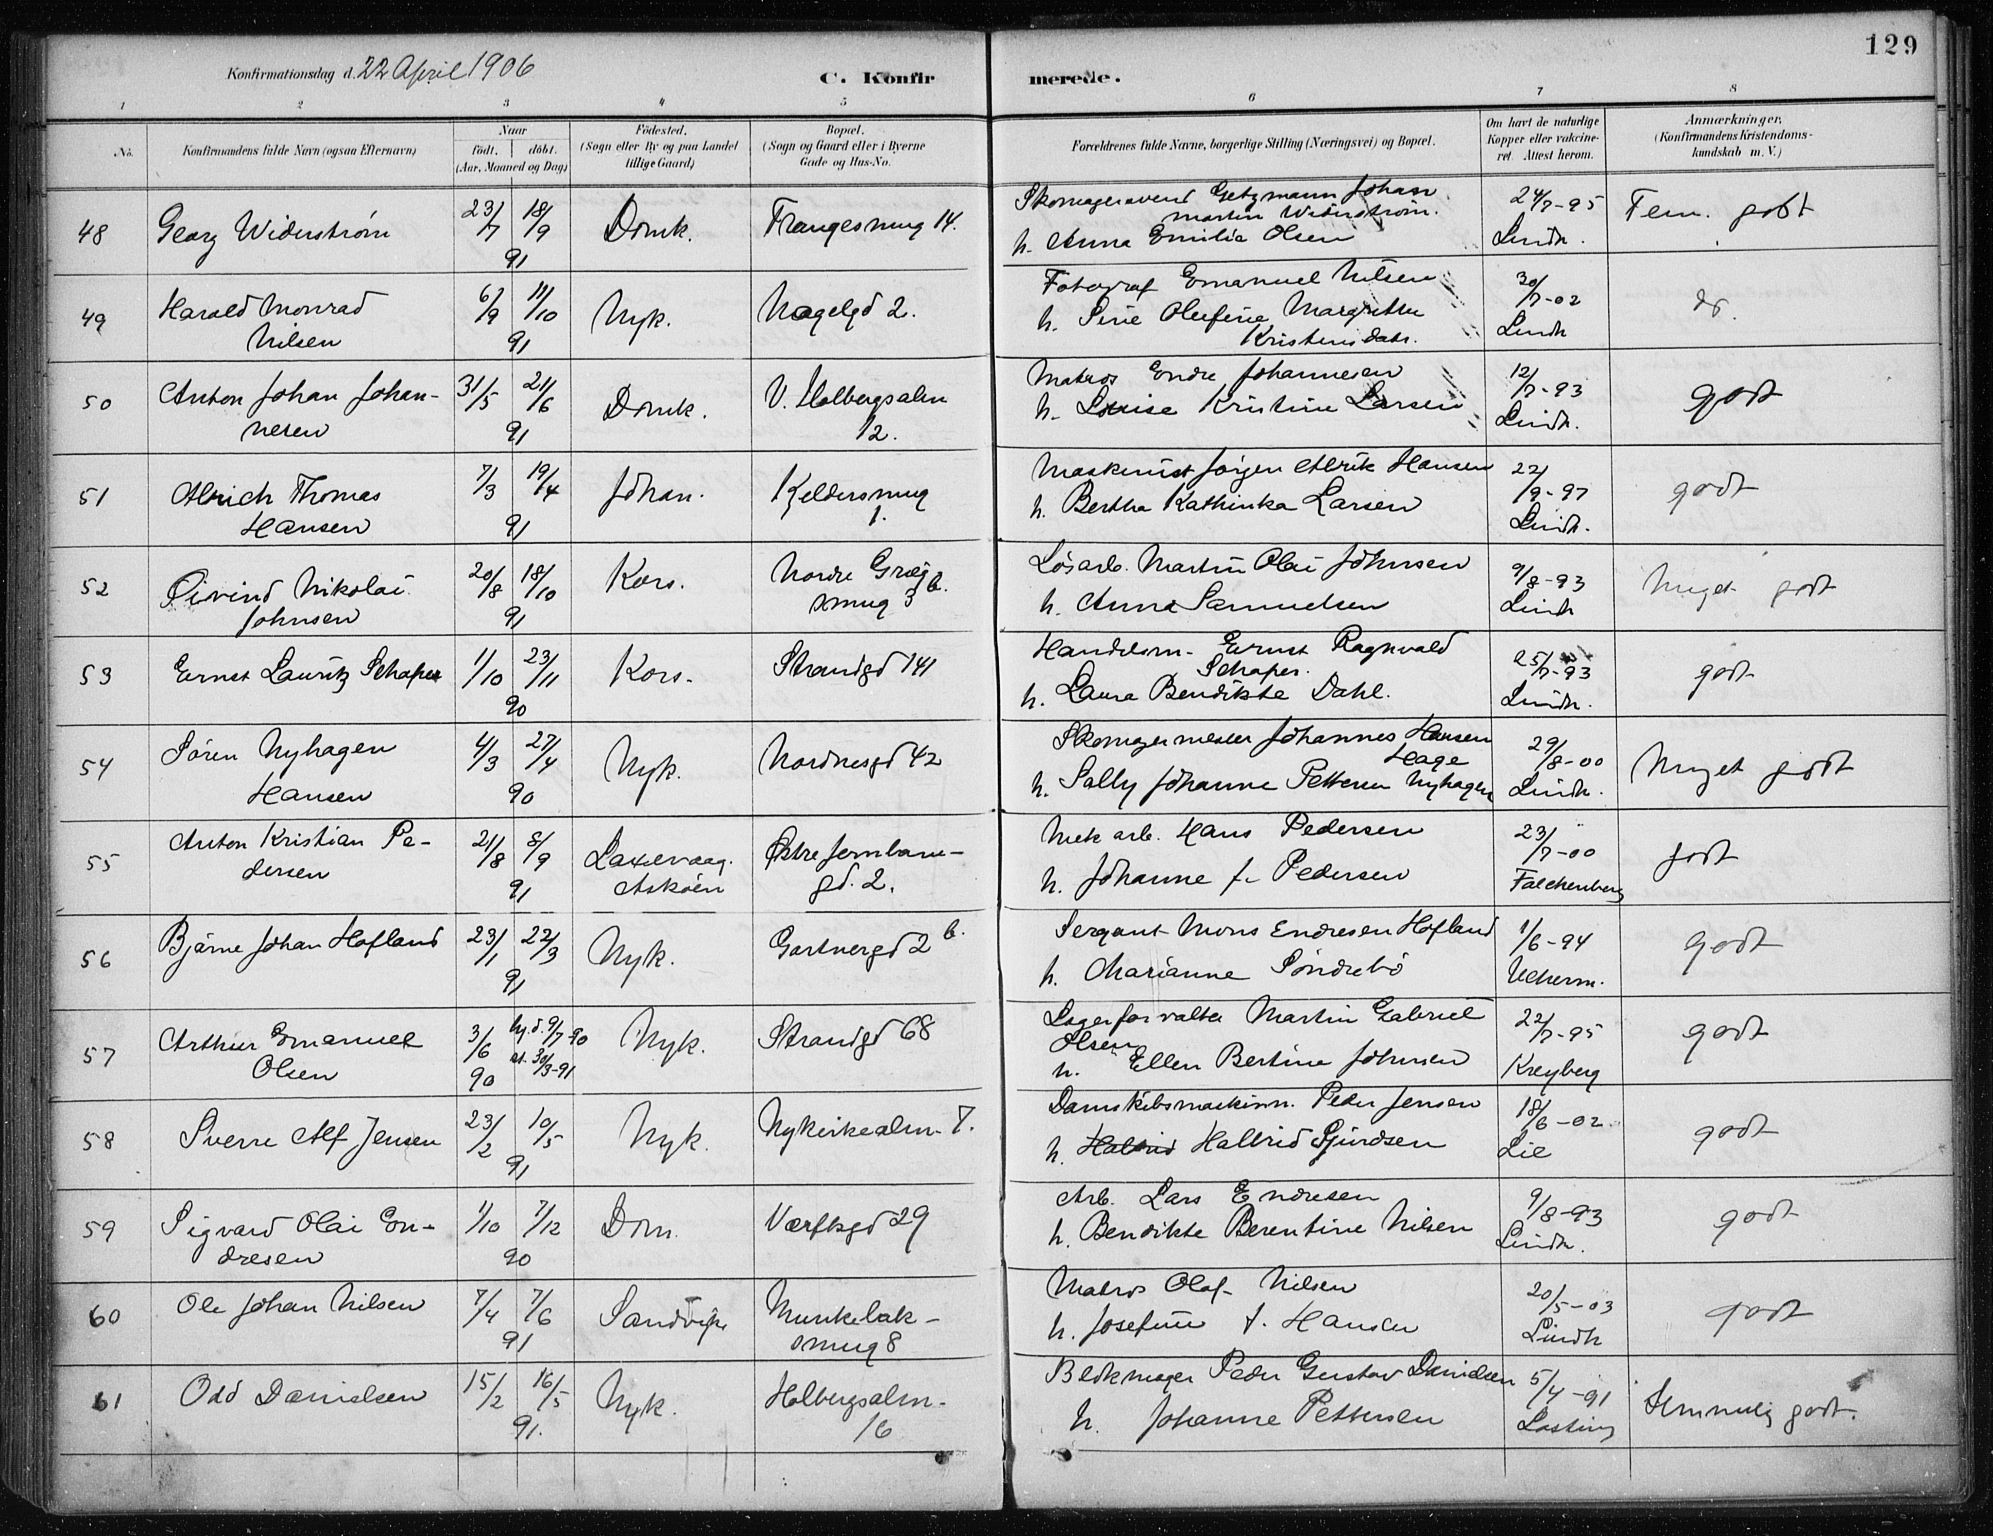 129
Konfirmationsdag d. 22 April 1906
C. Konfirmerede.
1 2 3 4 5 6 7 8
No.
Konfirmandens fulde Navn (ogsaa Efternavn)
Naar
født. døbt.
(Aar, Maaned og Dag)
Fødested.
(Sogn eller By og paa Landet
tillige Gaard)
Bopæl.
(Sogn og Gaard eller i Byerne
Gade og Hus-No.
Forældrenes fulde Navne, borgerlige Stilling (Næringsvei) og Bopæl.
Om havt de naturlige
Kopper eller vakcine-
ret. Attest herom.
Anmærkninger,
(Konfirmandens Kristendoms-
kundskab m. V.)
48
Georg Widerstrøm
23/7 18/9
91
Domk.
Frangesmug 14.
Skomagersvend Getzmann Johan
Martin Widerstrøm.
h. Anna Emilie Olsen
24/7-95
Lindh.
Tem. godt
49
Harald Monrad
Nilsen
6/9 11/10
91
Nyk.
Nagelgd 2.
Fotograf Emanuel Nilsen
h. Sine Olefine Margrethe
Kristensdatr.
30/7-02
Lindh
do.
50
Anton Johan Johan-
nesen
31/5 21/6
91
Domk.
V. Holbergsalm
12.
Matros Endre Johannesen
h. Louise Kristine Larsen
12/7-93
Lindh.
godt
51
Alrich Thomas
Hansen
7/3 19/4
91
Johan.
Keldersmug
1.
Maskinist Jørgen Alrik Hansen
h. Bertha Kathinka Larsen
22/9-97
Lindh.
godt
52
Øivind Nikolai
Johnsen
20/8 18/10
91
Kors.
Nordre Græg
smug 3 b.
Løsarb. Martin Olai Johnsen
h. Anna Samuelsen
9/8-93
Lindh
Meget godt
53
Ernst Lauritz Schaper
1/10 23/11
90
Kors.
Strandgd 141
Handelsm. Ernst Ragnvald
Schaper.
h. Laura Bendikte Dahl.
25/7-93
Lindh.
godt
54
Søren Nyhagen
Hansen
4/3 27/4
90
Nyk.
Nordnesgd 42
Skomagermester Johannes Hansen
Hage
h. Sally Johanne Pettersen Nyhagen
29/8-00
Lindh.
Meget godt
55
Anton Kristian Pe-
dersen
21/8 8/9
91
Laxevaag.
Askøen
Østre Jernbane-
gd. 2.
Mek arb. Hans Pedersen
h. Johanne f. Pedersen
23/7-00
Falchenberg
godt
56
Bjärne Johan Hofland
23/1 22/3
91
Nyk.
Gartnergd 2 b.
Sergant Mons Endresen Hofland
h. Marianne Söndrebö
1/6-94
Ucherm.
godt
57
Arthur Emanuel
Olsen
3/6 hj.d. 9/7-90
90 st. 30/3-91
Nyk.
Strandgd 68
Lagerforvalter Martin Gabriel
Olsen
h. Ellen Bertine Johnsen
22/7-95
Kreyberg
godt
58
Sverre Alf Jensen
23/2 10/5
91
Nyk.
Nykirkealm. 7.
Damskibsmaskinm. Peder Jensen
h. Halbrid Sjurdsen
18/6-02
Lie
godt
59
Sigvard Olai En-
dresen
1/10 7/12
90
Dom.
Værftsgd 29
Arb. Lars Endresen
h. Bendikte Berentine Nilsen
9/8-93
Lindh.
godt
60
Ole Johan Nilsen
7/4 7/6
91
Sandvik
Munkebæk-
smug 8
Matros Olaf Nilsen
h. Josefine f. Hansen
20/5-03
Lindh
godt
61
Odd Danielsen
15/2 16/5
91.
Nyk.
Holbergsalm.
16
Blokmager Peder Gustav Danielsen
h. Johanne Pettersen
5/4-91
Lasting
Temmelig godt.